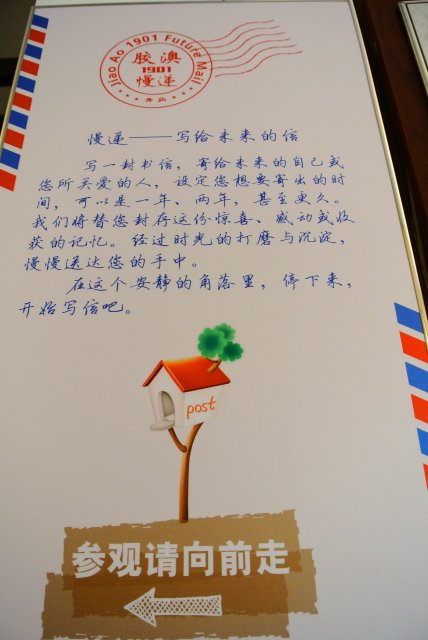 Jiao Ao 1901 Future Mail
胶澳
1901
慢递
青岛
慢递——写给未来的信
写一封书信，寄给未来的自己或
您所关爱的人，设定您想要寄出的时
间，可以是一年、两年，甚至更久。
我们将替您封存这份惊喜、感动或收
获的记忆。经过时光的打磨与沉淀，
慢慢送达您的手中。
在这个安静的角落里，停下来，
开始写信吧。
post
参观请向前走